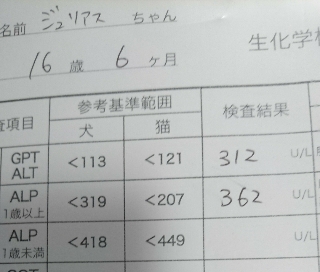 名前 ジュリアス ちゃん
16 歳 6 ヶ月
生化学
参考基準範囲 検査結果
査項目 犬 猫
GPT
ALT <113 <121 312 U/L
ALP
1歳以上 <319 <207 362 U/L
ALP
1歳未満 <418 <449 U/L